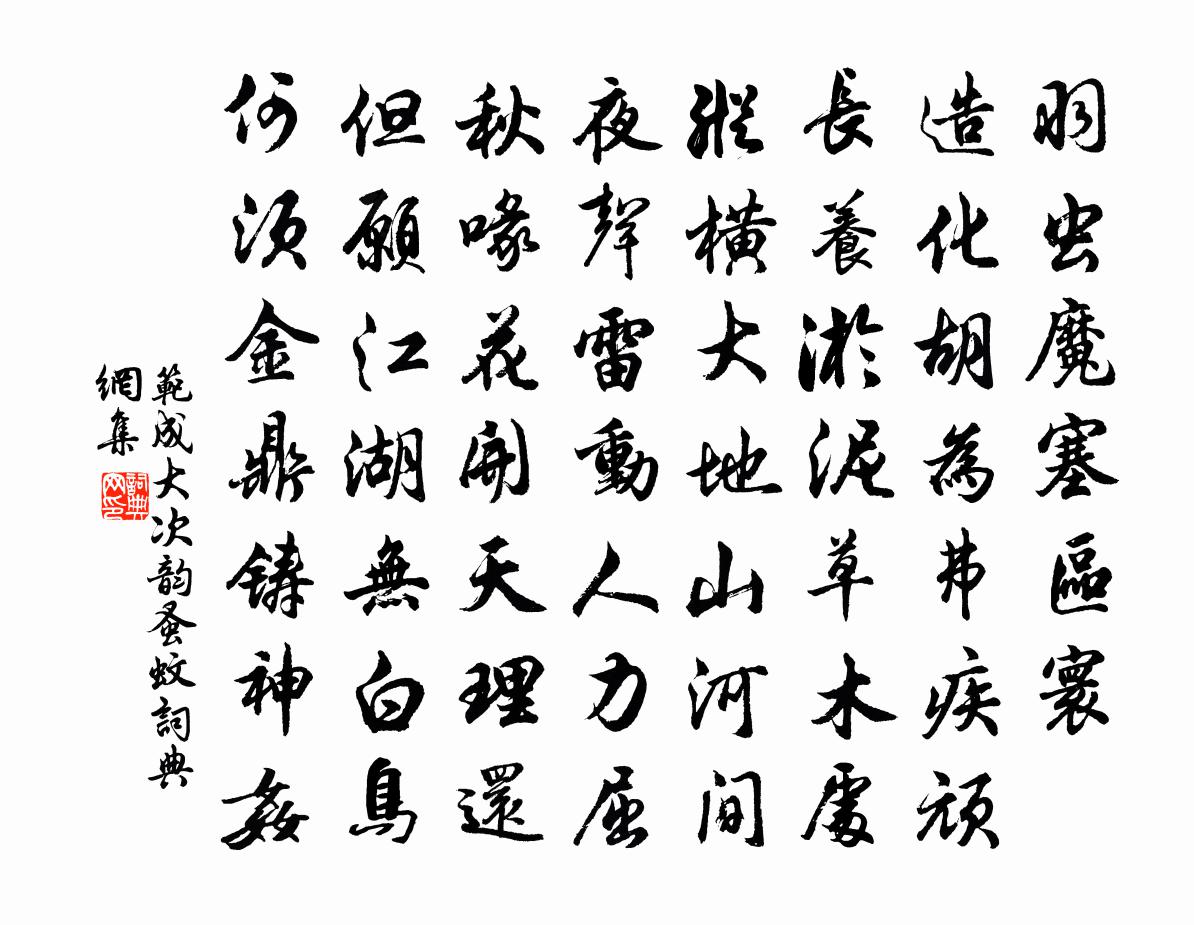 羽虫魔塞區寰
造化胡為弗疾頑
長養淤泥草木處
縱橫大地山河間
夜聲雷動人力屈
秋喙花開天理還
但願江湖無白鳥
何須金鼎鑄神姦
範成大次韵蚤蚊詞典
網集
詞典
网印